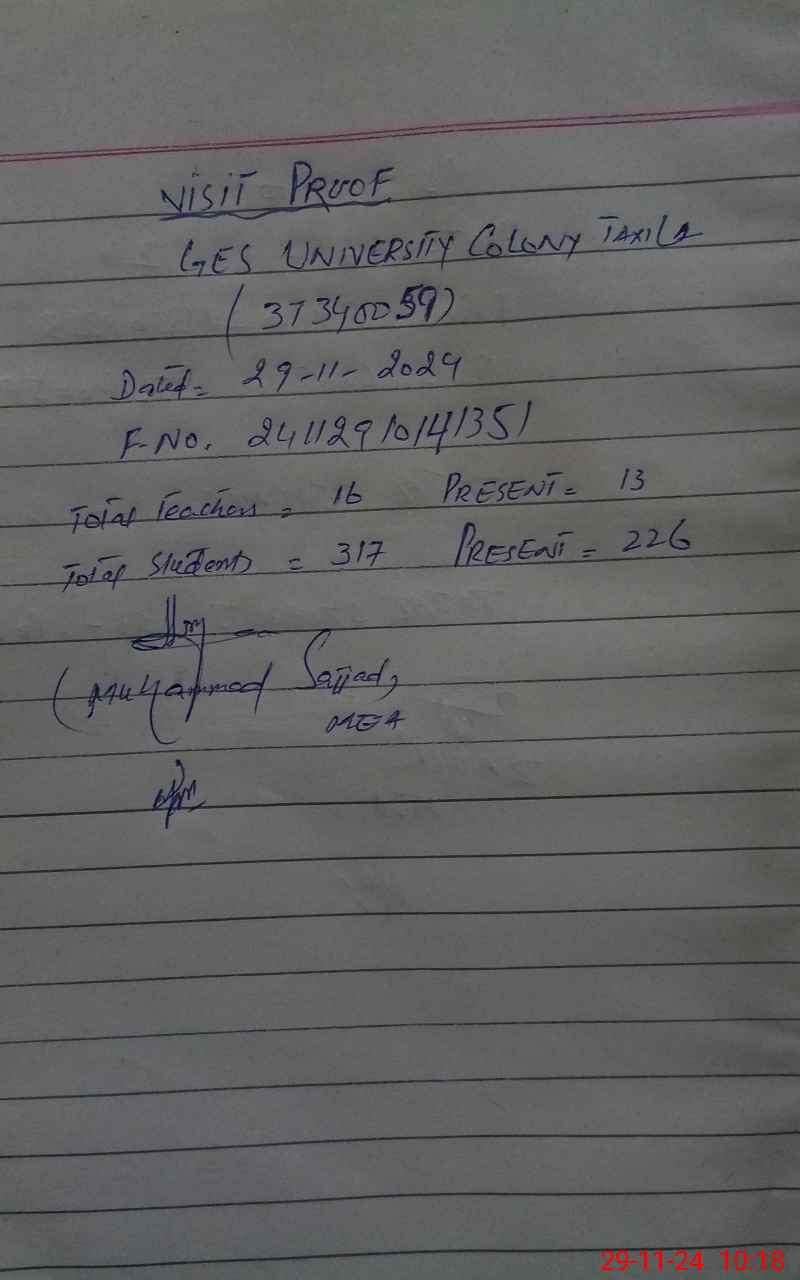 VISIT PROOF
GES UNIVERSITY COLONY TAXILA
(37340059)
Dated = 29-11-2024
F-No. 24112910141351
Total Teachers = 16 PRESENT = 13
Total Students = 317 PRESENT = 226
(Muhammad Sajjad,
MEA
29-11-24 10:18